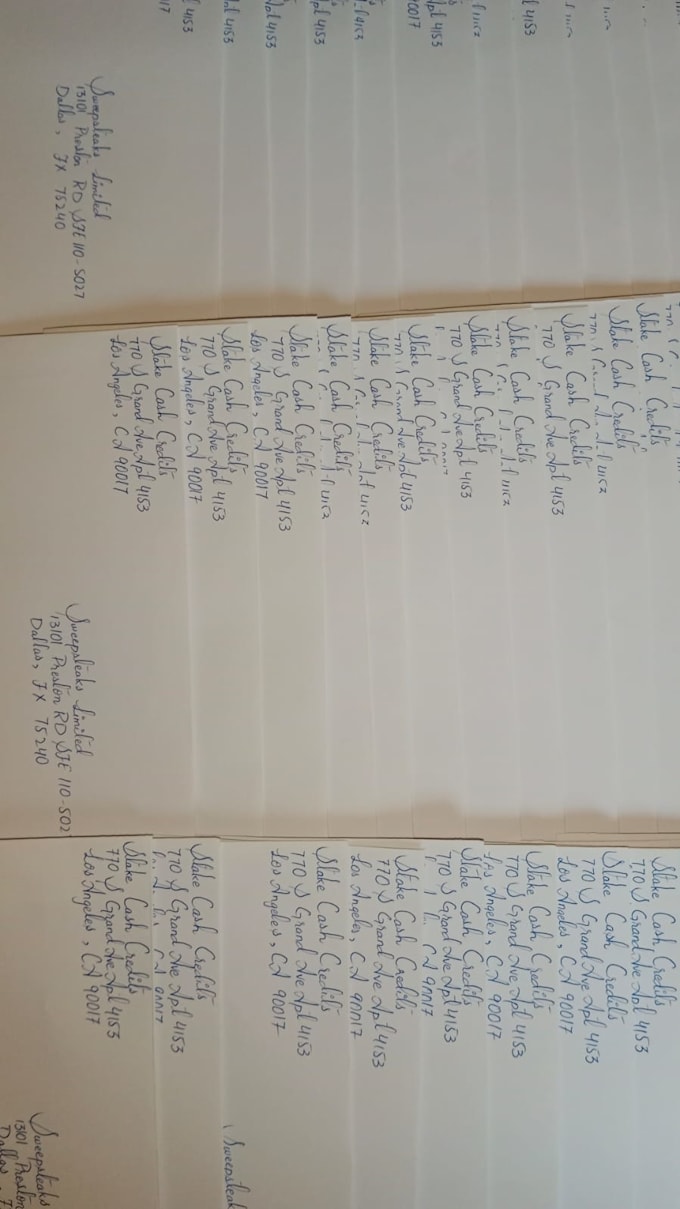 4153
Apt 4153
90017
Apt 4153
Apt 4153
Apt 4153
4153
Sweepsteaks Limited
13101 Preston RD STE 110-5027
Dallas, TX 75240
Stake Cash Credits
Stake Cash Credits
Stake Cash Credits
770 S Grand Ave Apt 4153
Stake Cash Credits
Stake Cash Credits
770 S Grand Ave Apt 4153
Stake Cash Credits
770 S Grand Ave Apt 4153
Stake Cash Credits
Stake Cash Credits
Stake Cash Credits
770 S Grand Ave Apt 4153
Los Angeles, CA 90017
Stake Cash Credits
770 S Grand Ave Apt 4153
Los Angeles, CA 90017
Stake Cash Credits
770 S Grand Ave Apt 4153
Los Angeles, CA 90017
Sweepsteaks Limited
13101 Preston RD STE 110-502
Dallas, TX 75240
Stake Cash Credits
770 S Grand Ave Apt 4153
Stake Cash Credits
770 S Grand Ave Apt 4153
Los Angeles, CA 90017
Stake Cash Credits
770 S Grand Ave Apt 4153
Los Angeles, CA 90017
Stake Cash Credits
770 S Grand Ave Apt 4153
CA 90017
Stake Cash Credits
770 S Grand Ave Apt 4153
Los Angeles, CA 90017
Stake Cash Credits
770 S Grand Ave Apt 4153
Los Angeles, CA 90017
Sweepsteak
Stake Cash Credits
770 S Grand Ave Apt 4153
CA 90017
Stake Cash Credits
770 S Grand Ave Apt 4153
Los Angeles, CA 90017
Sweepsteaks
13101 Preston
Dallas,